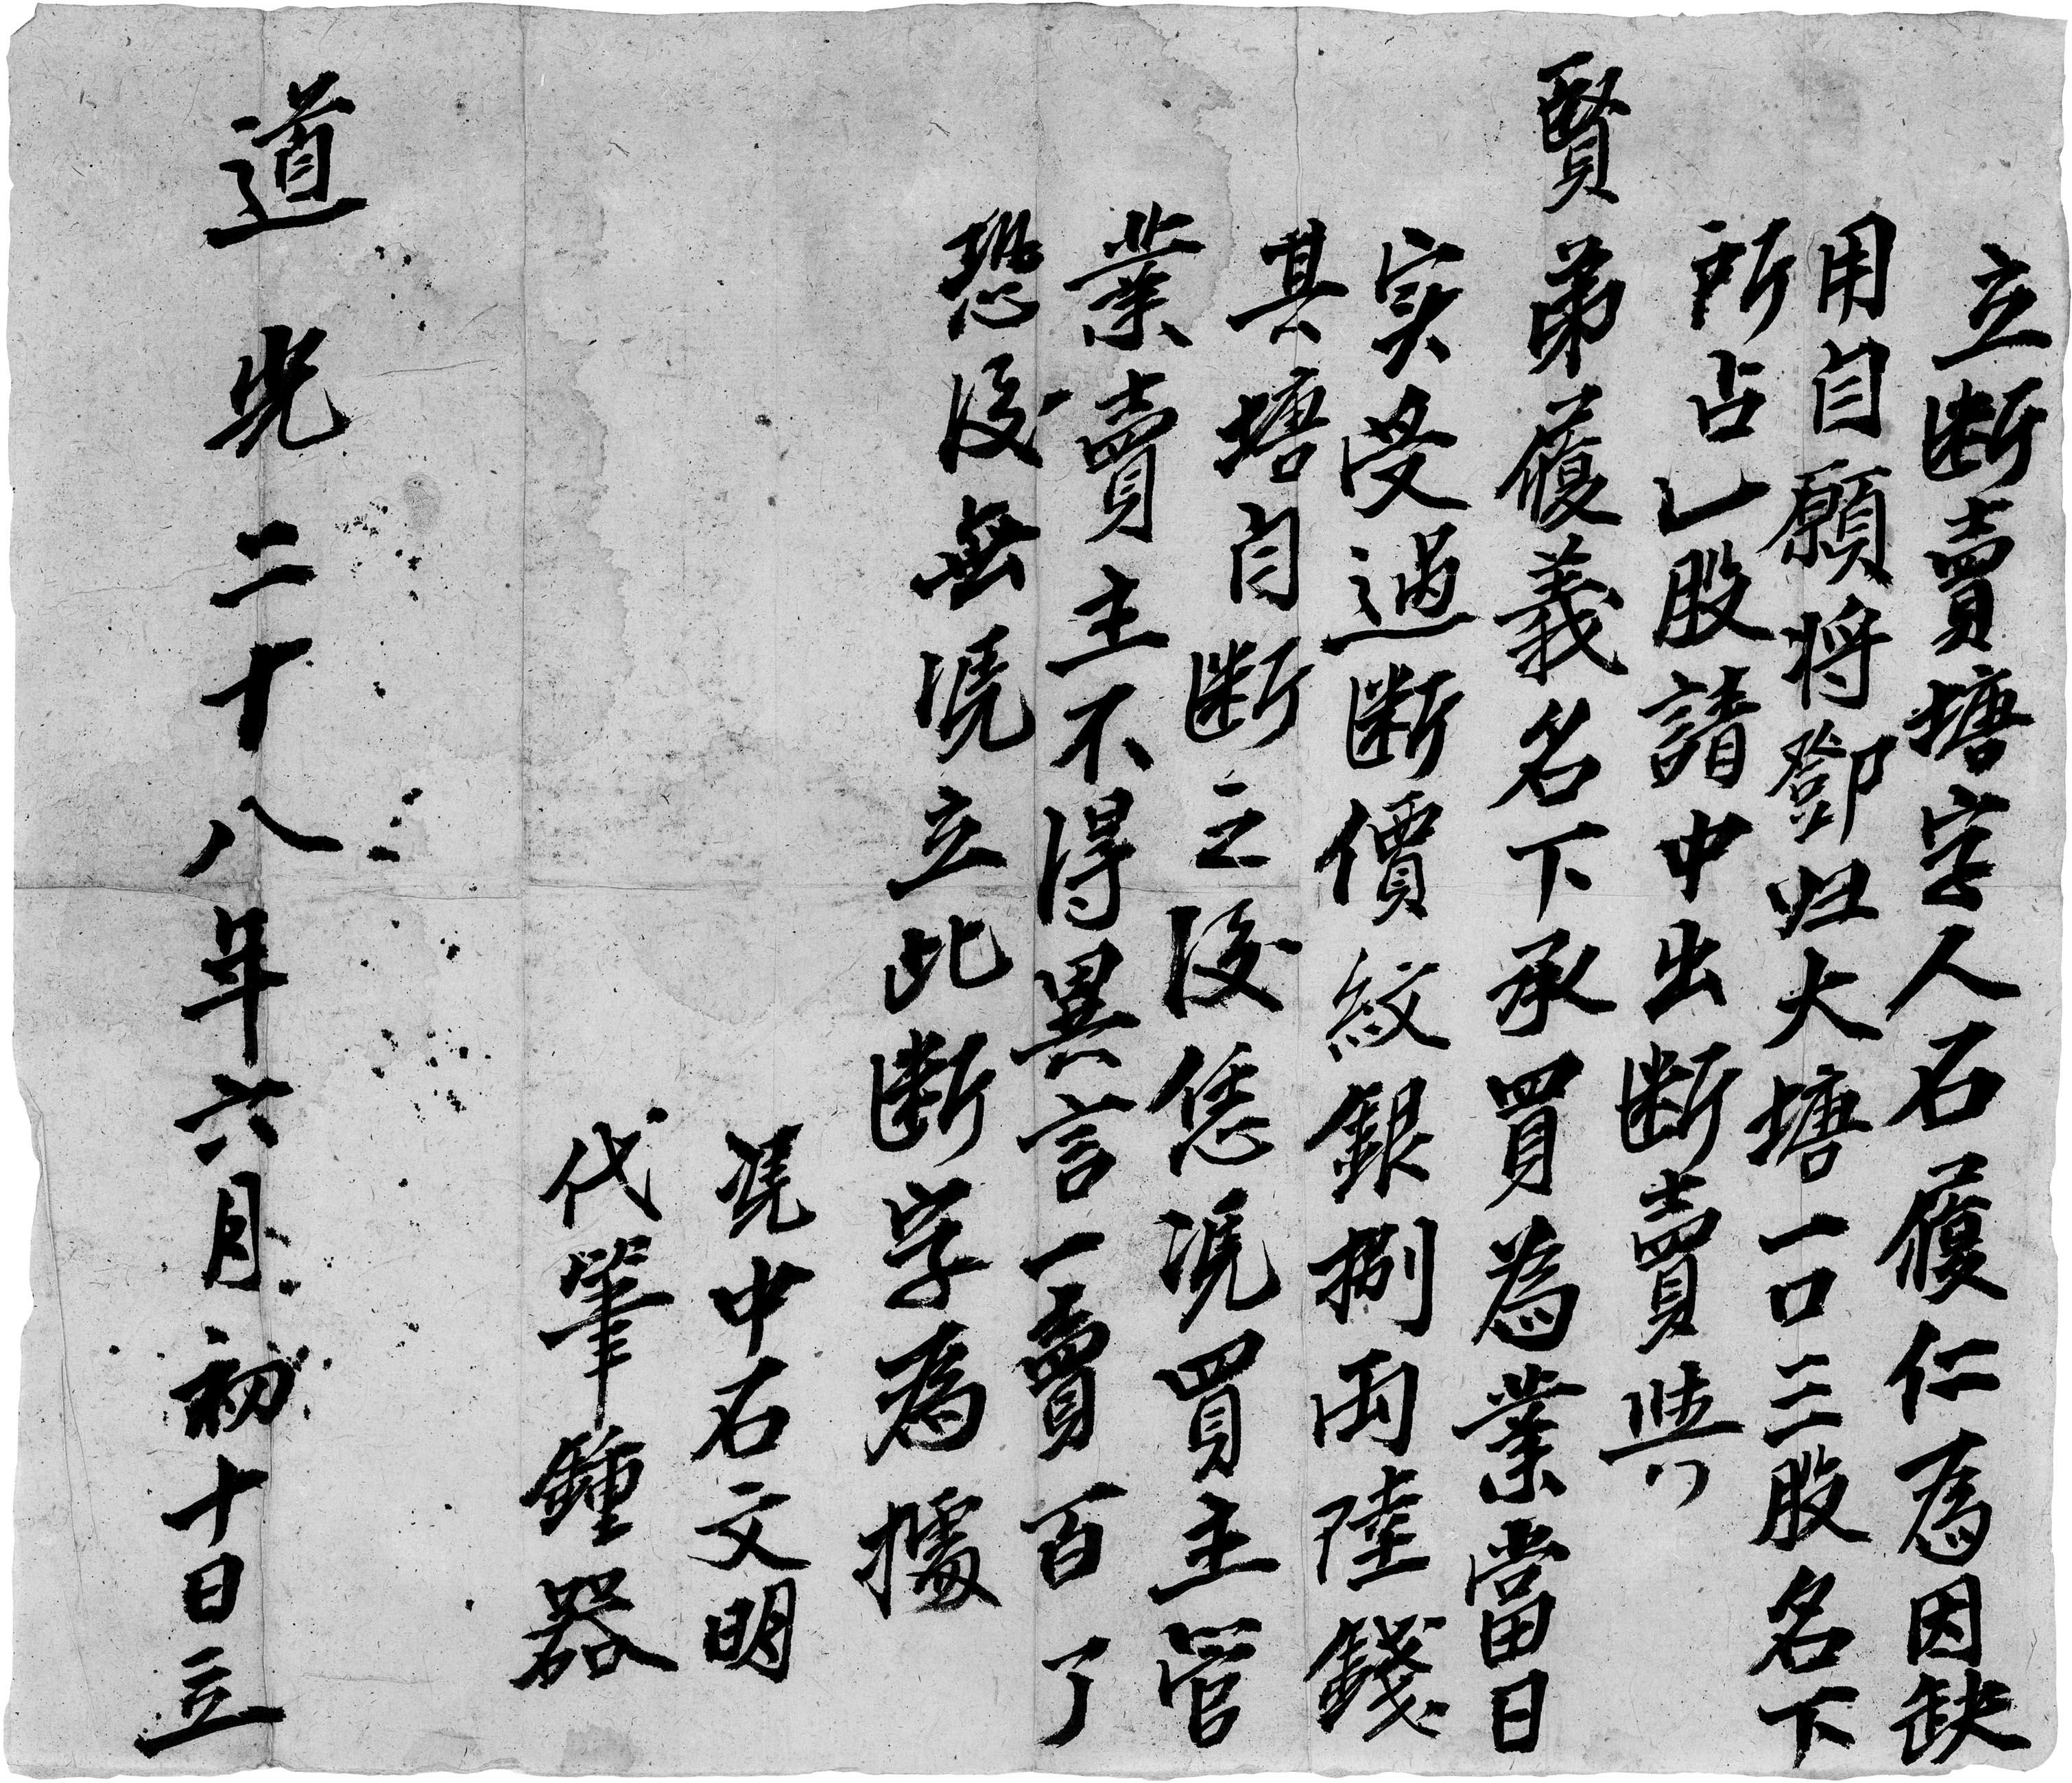 立断賣塘字人石履仁為因缺
用自願将鄧归大塘一口三股名下
所占乙股請中出断賣與
賢弟履義名下承買為業當日
実受過断價紋銀捌両陸錢
其塘自断之後恁凴買主管
業賣主不得異言一賣百了
恐後無凴立此断字為據
凴中石文明
代筆鍾器
道光二十八年六月初十日立